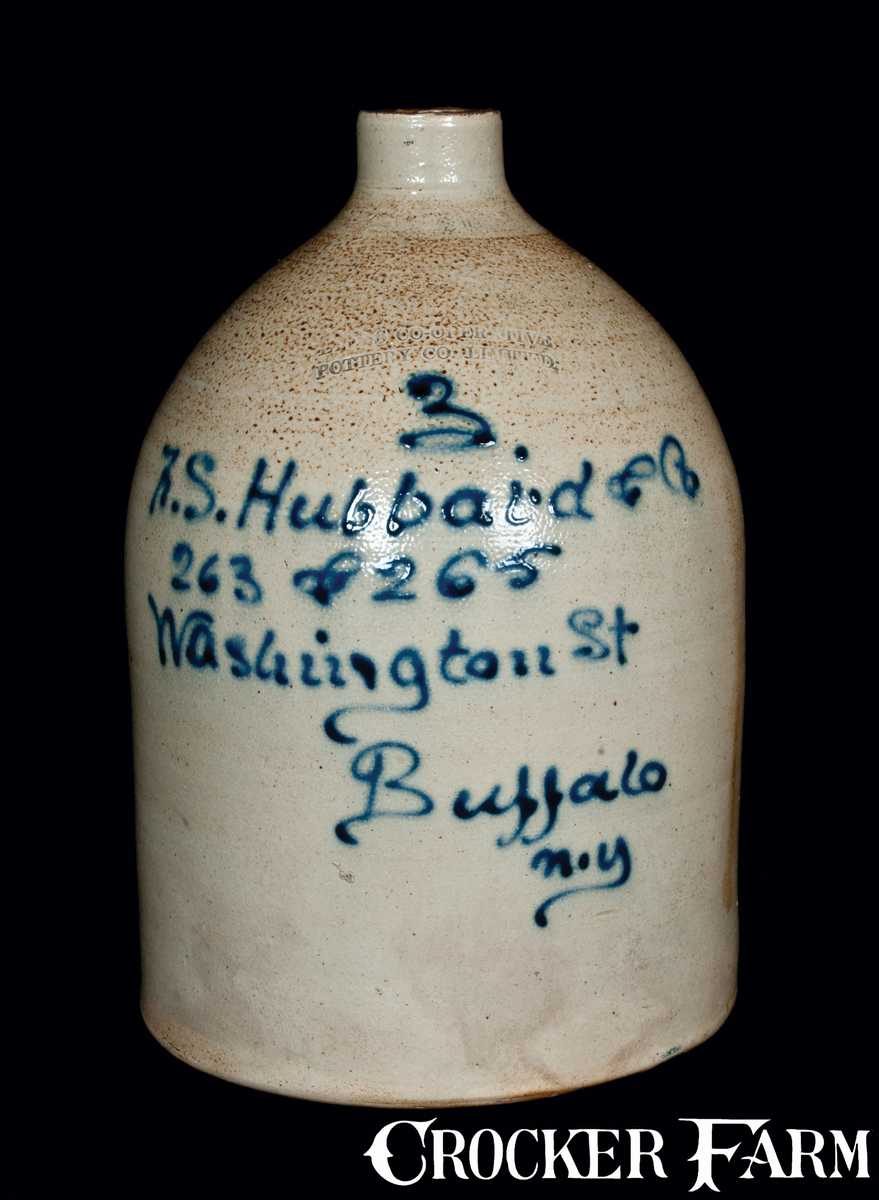 CO-OPERATIVE
POTTERY CO. LIMITED.
3
S. Hubbard & Co
263 & 265
Washington St
Buffalo
n.y
CROCKER FARM